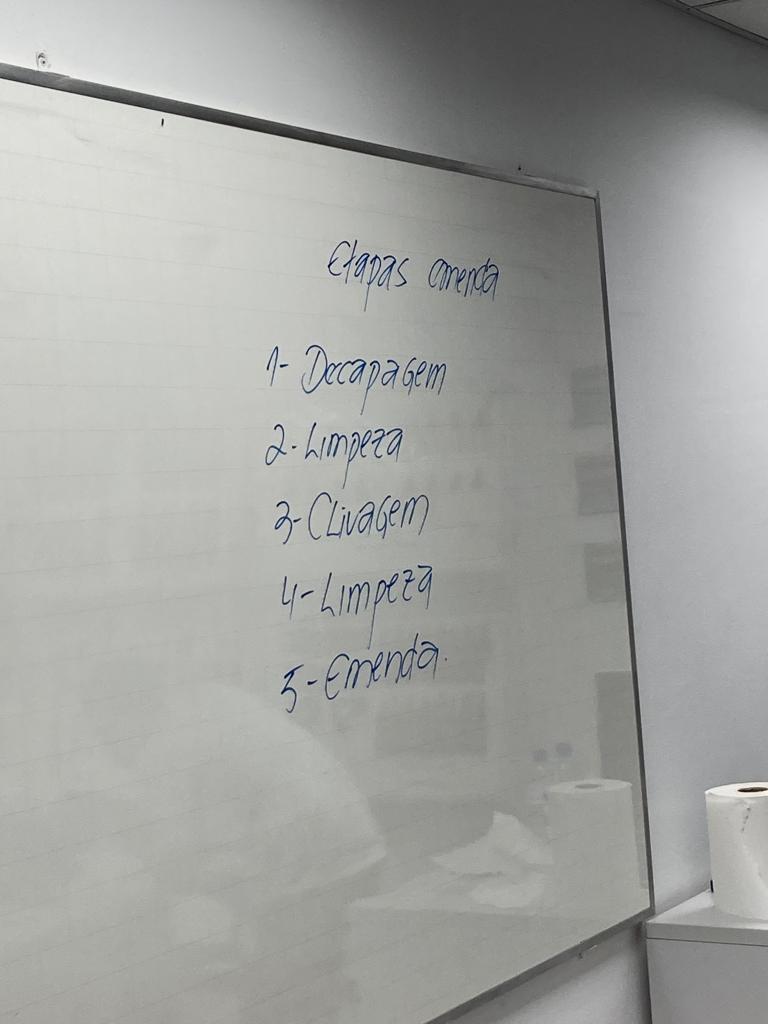 Etapas emenda
1- Decapagem
2- Limpeza
3- Clivagem
4- Limpeza
5- Emenda.